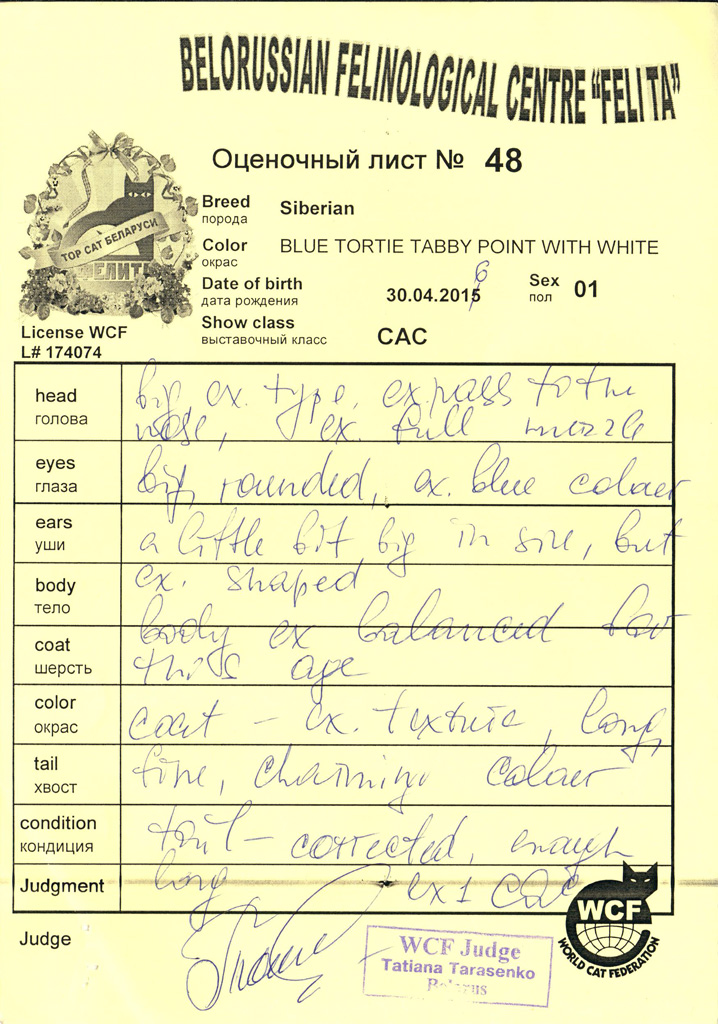 BELORUSSIAN FELINOLOGICAL CENTRE "FELITA"
Оценочный лист № 48
TOP CAT БЕЛАРУСИ
ФЕЛИТА
Breed
порода
Siberian
Color
окрас
BLUE TORTIE TABBY POINT WITH WHITE
Date of birth
дата рождения
30.04.2015
6
Sex
пол
01
Show class
выставочный класс
CAC
License WCF
L# 174074
head
голова
big, ex. type, ex. pass to the
nose, ex. full muzzle
eyes
глаза
big, rounded, ex. blue colour
ears
уши
a little bit big in size, but
ex. shaped
body
тело
body ex balanced for
coat
шерсть
this age
color
окрас
coat – ex. texture, long,
tail
хвост
fine, charming colour
condition
кондиция
tail – corrected, enough
Judgment
long
ex 1 CAC
Judge
WCF Judge
Tatiana Tarasenko
Belarus
WCF
WORLD CAT FEDERATION